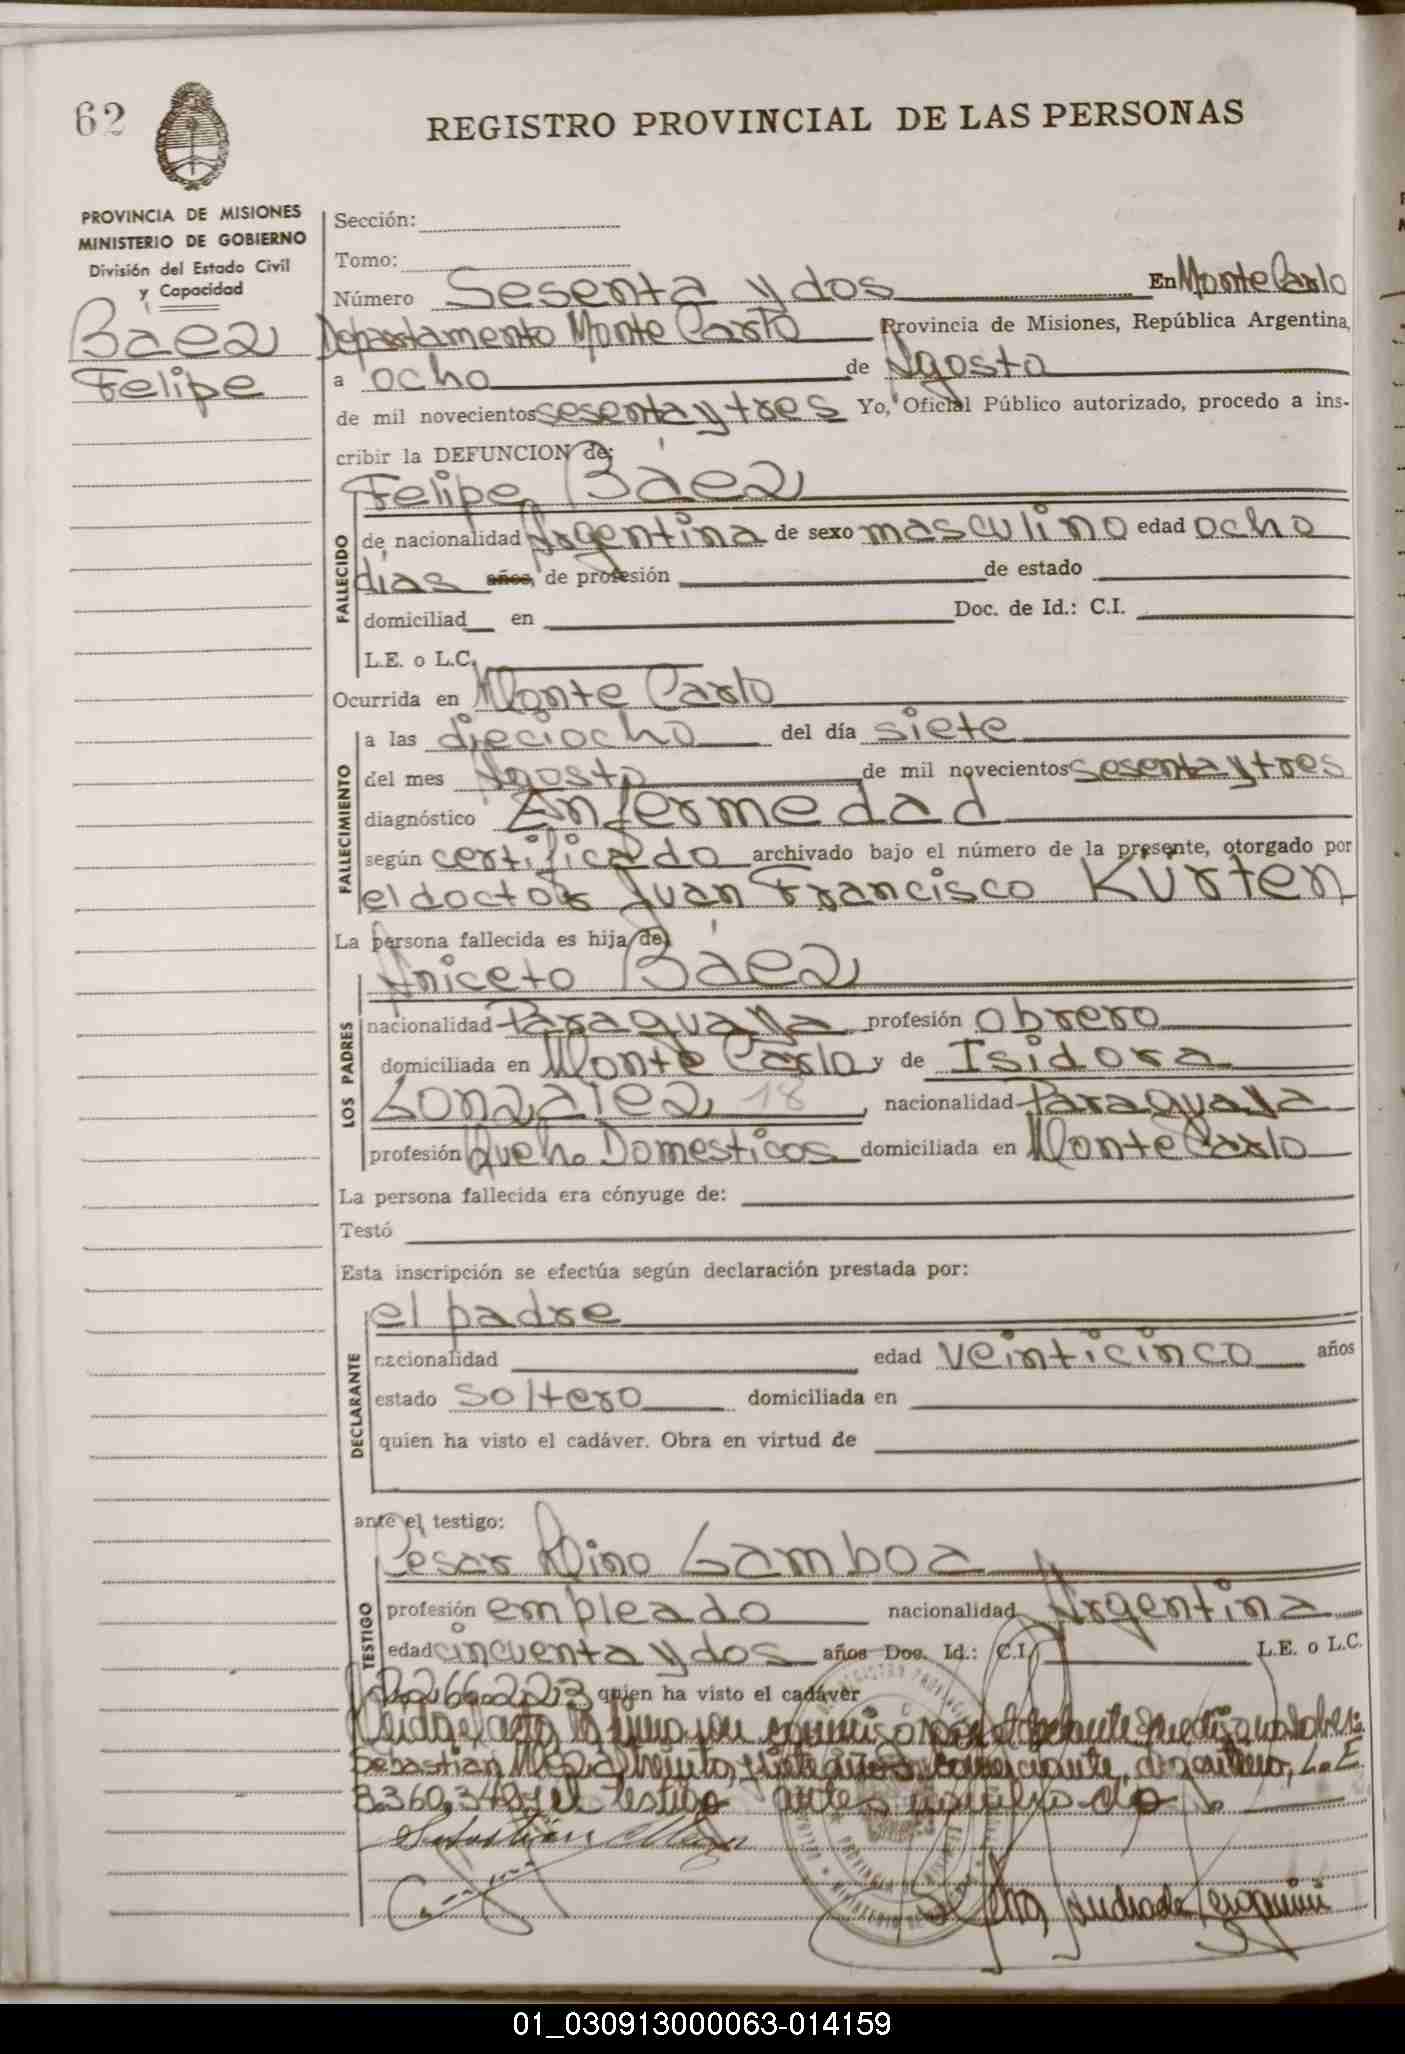 62
REGISTRO PROVINCIAL DE LAS PERSONAS
PROVINCIA DE MISIONES
MINISTERIO DE GOBIERNO
División del Estado Civil
y Capacidad
Báez
Felipe
Sección:
Tomo:
Número Sesenta y dos En Monte Carlo
Departamento Monte Carlo Provincia de Misiones, República Argentina,
a ocho de Agosto
de mil novecientos sesenta y tres Yo, Oficial Público autorizado, procedo a ins-
cribir la DEFUNCION de:
Felipe Báez
FALLECIDO
de nacionalidad Argentina de sexo masculino edad ocho
días años, de profesión de estado
domiciliad en Doc. de Id.: C.I.
L.E. o L.C.
Ocurrida en Monte Carlo
FALLECIMIENTO
a las dieciocho del día siete
del mes Agosto de mil novecientos sesenta y tres
diagnóstico Enfermedad
según certificado archivado bajo el número de la presente, otorgado por
el doctor Juan Francisco Kürten
La persona fallecida es hija de:
LOS PADRES
Aniceto Báez
nacionalidad Paraguaya profesión obrero
domiciliada en Monte Carlo y de Isidora
Gonzalez 18, nacionalidad Paraguaya
profesión Queh. Domesticos domiciliada en Monte Carlo
La persona fallecida era cónyuge de:
Testó
Esta inscripción se efectúa según declaración prestada por:
DECLARANTE
el padre
nacionalidad edad veinticinco años
estado soltero domiciliada en
quien ha visto el cadáver. Obra en virtud de
ante el testigo:
TESTIGO
Cesar Dino Gamboa
profesión empleado nacionalidad Argentina
edad cincuenta y dos años Doc. Id.: C.I. L.E. o L.C.
quien ha visto el cadáver
Leida el acta la firma
Sebastian treinta y siete años comerciante, argentino, L.E.
y el testigo antes nombrado
01_030913000063-014159